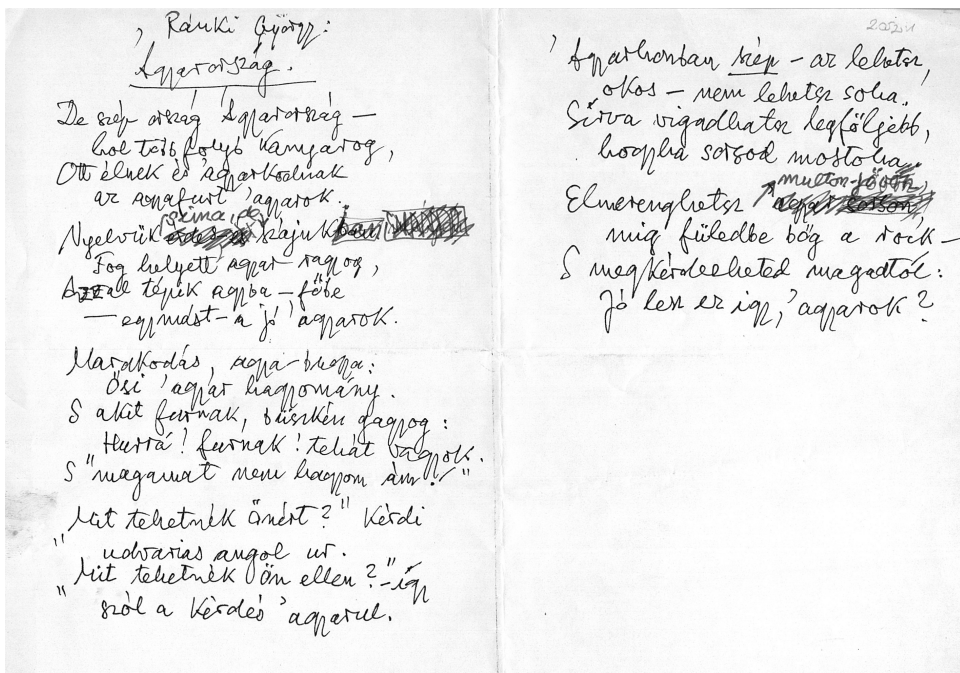 Ránki György:
Agyarország.
De szép ország Agyarország –
hol több folyó kanyarog,
Ott élnek és agyarkodnak
az agyafurt agyarok.
Nyelvük sima, de szájukban
Fog helyett agyar ragyog,
Azzal tépik agyba-főbe
– egymást – a jó agyarok.
Marakodás, agya-bugya:
Ősi agyar hagyomány.
S akit furnak, büszkén gagyog:
Hurrá! furnak! tehát vagyok.
S "magamat nem hagyom ám!"
"Mit tehetnék Önért?" kérdi
udvarias angol ur.
"Mit tehetnék Ön ellen?" – így
szól a kérdés agyarul.
Agyarhonban szép – az lehetsz,
okos – nem lehetsz soha.
Sírva vigadhatsz legföljebb,
hogyha sorsod mostoha.
multon-jövőn,
Elmerenghetsz
míg füledbe bőg a rock –
S megkérdezheted magadtól:
Jó lesz ez igy, agyarok?